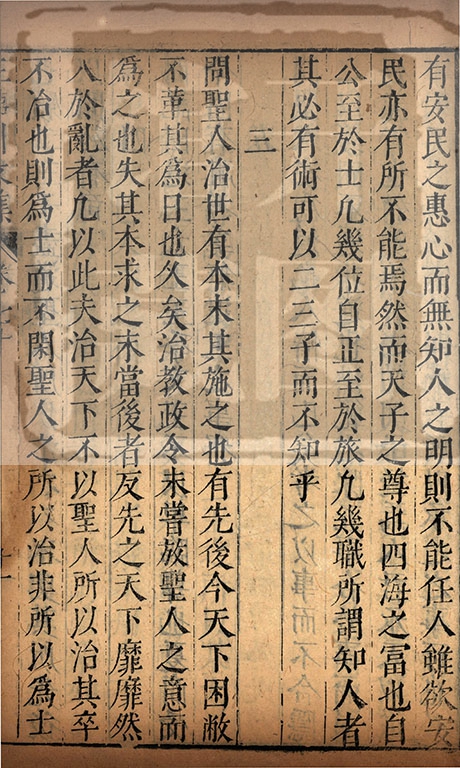 有安民之惠心而無知人之明則不能任人雖欲安
民亦有所不能焉然而天子之尊也四海之富也自
公至於士凡幾位自正至於旅凡幾職所謂知人者
其必有術可以二三子而不知乎
三
問聖人治世有本末其施之也有先後今天下困敝
不革其爲日也久矣治教政令未嘗放聖人之意而
爲之也失其本求之末當後者反先之天下靡靡然
入於亂者凡以此夫治天下不以聖人所以治其卒
不治也則爲士而不閑聖人之所以治非所以爲士